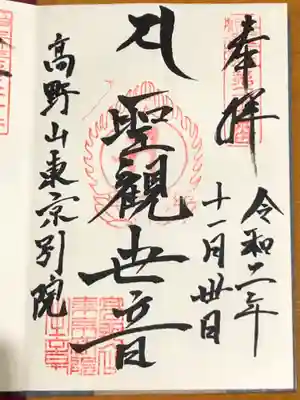 奉拝
令和二年
十一月卅日
聖観世音
高野山東京別院